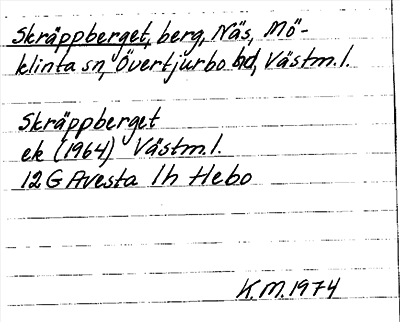 Skräppberget, berg, Näs, Mö-
klinta sn, Övertjurbo hd, Västm. l.
Skräppberget
ek (1964) Västm. l.
12 G Avesta 1h Hebo
K.M. 1974